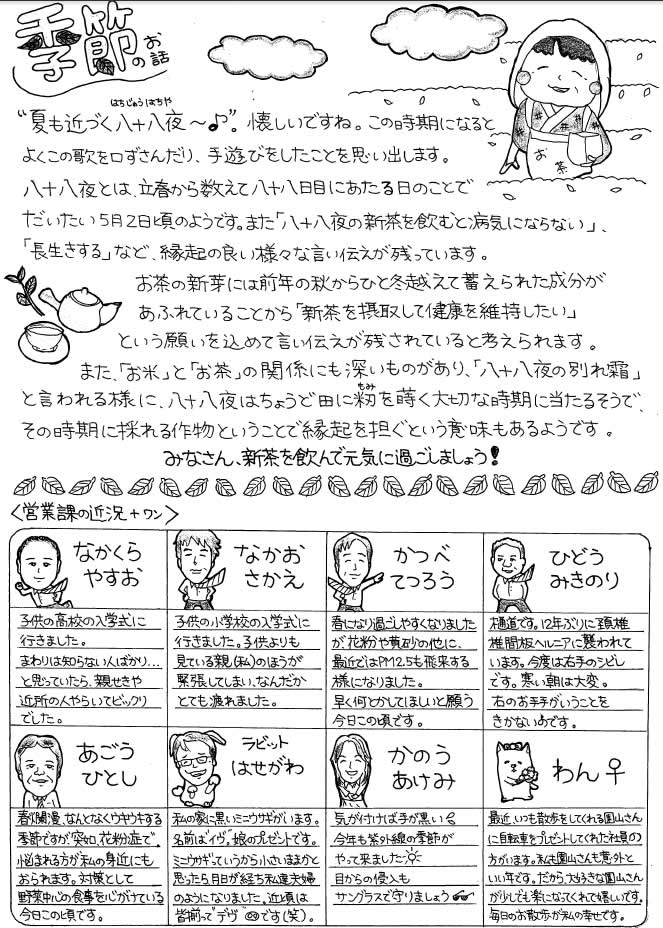 季節のお話
お茶
はちじゅうはちや
“夏も近づく八十八夜～♪”。懐しいですね。この時期になると
よくこの歌を口ずさんだり、手遊びをしたことを思い出します。
八十八夜とは、立春から数えて八十八日目にあたる日のことで
だいたい5月2日頃のようです。また「八十八夜の新茶を飲むと病気にならない」、
「長生きする」など、縁起の良い様々な言い伝えが残っています。
お茶の新芽には前年の秋からひと冬越えて蓄えられた成分が
あふれていることから「新茶を摂取して健康を維持したい」
という願いを込めて言い伝えが残されていると考えられます。
また、「お米」と「お茶」の関係にも深いものがあり、「八十八夜の別れ霜」
もみ
と言われる様に、八十八夜はちょうど田に籾を蒔く大切な時期に当たるそうで、
その時期に採れる作物ということで縁起を担ぐという意味もあるようです。
みなさん、新茶を飲んで元気に過ごしましょう!
〈営業課の近況+ワン〉
なかくら
やすお
子供の高校の入学式に
行きました。
まわりは知らない人ばかり...
と思っていたら、親せきや
近所の人やらいてビックリ
でした。
なかお
さかえ
子供の小学校の入学式に
行きました。子供よりも
見ている親(私)のほうが
緊張してしまい、なんだか
とても疲れました。
かつべ
てつろう
春になり過ごしやすくなりました
が、花粉や黄砂の他に、
最近ではPM2.5も飛来する
様になりました。
早く何とかしてほしいと願う
今日この頃です。
ひどう
みきのり
樋道です。12年ぶりに頚椎
椎間板ヘルニアに襲われて
います。今度は右手のシビレ
です。寒い朝は大変。
右のお手手がいうことを
きかないのです。
あごう
ひとし
春爛漫、なんとなくウキウキする
季節ですが、突如、花粉症で
悩まれる方が私の身近にも
おられます。対策として
野菜中心の食事を心がけている
今日この頃です。
ラビット
はせがわ
私の家に黒いミニウサギがいます。
名前は"イヴ"。娘のプレゼントです。
ミニウサギっていうから小さいままかと
思ったら、月日が経ち私達夫婦
のようになりました。近頃は
皆揃って"デヴ"です(笑)。
かのう
あけみ
気が付けば手が黒い
今年も紫外線の季節が
やって来ました
目からの侵入も
サングラスで守りましょう
わん♀
最近、いつも散歩をしてくれる園山さん
に自転車をプレゼントしてくれた社員の
方がいます。私も園山さんも意外と
いい年です。だから、大好きな園山さん
が少しでも楽になってくれて嬉しいです。
毎日のお散歩が私の幸せです。